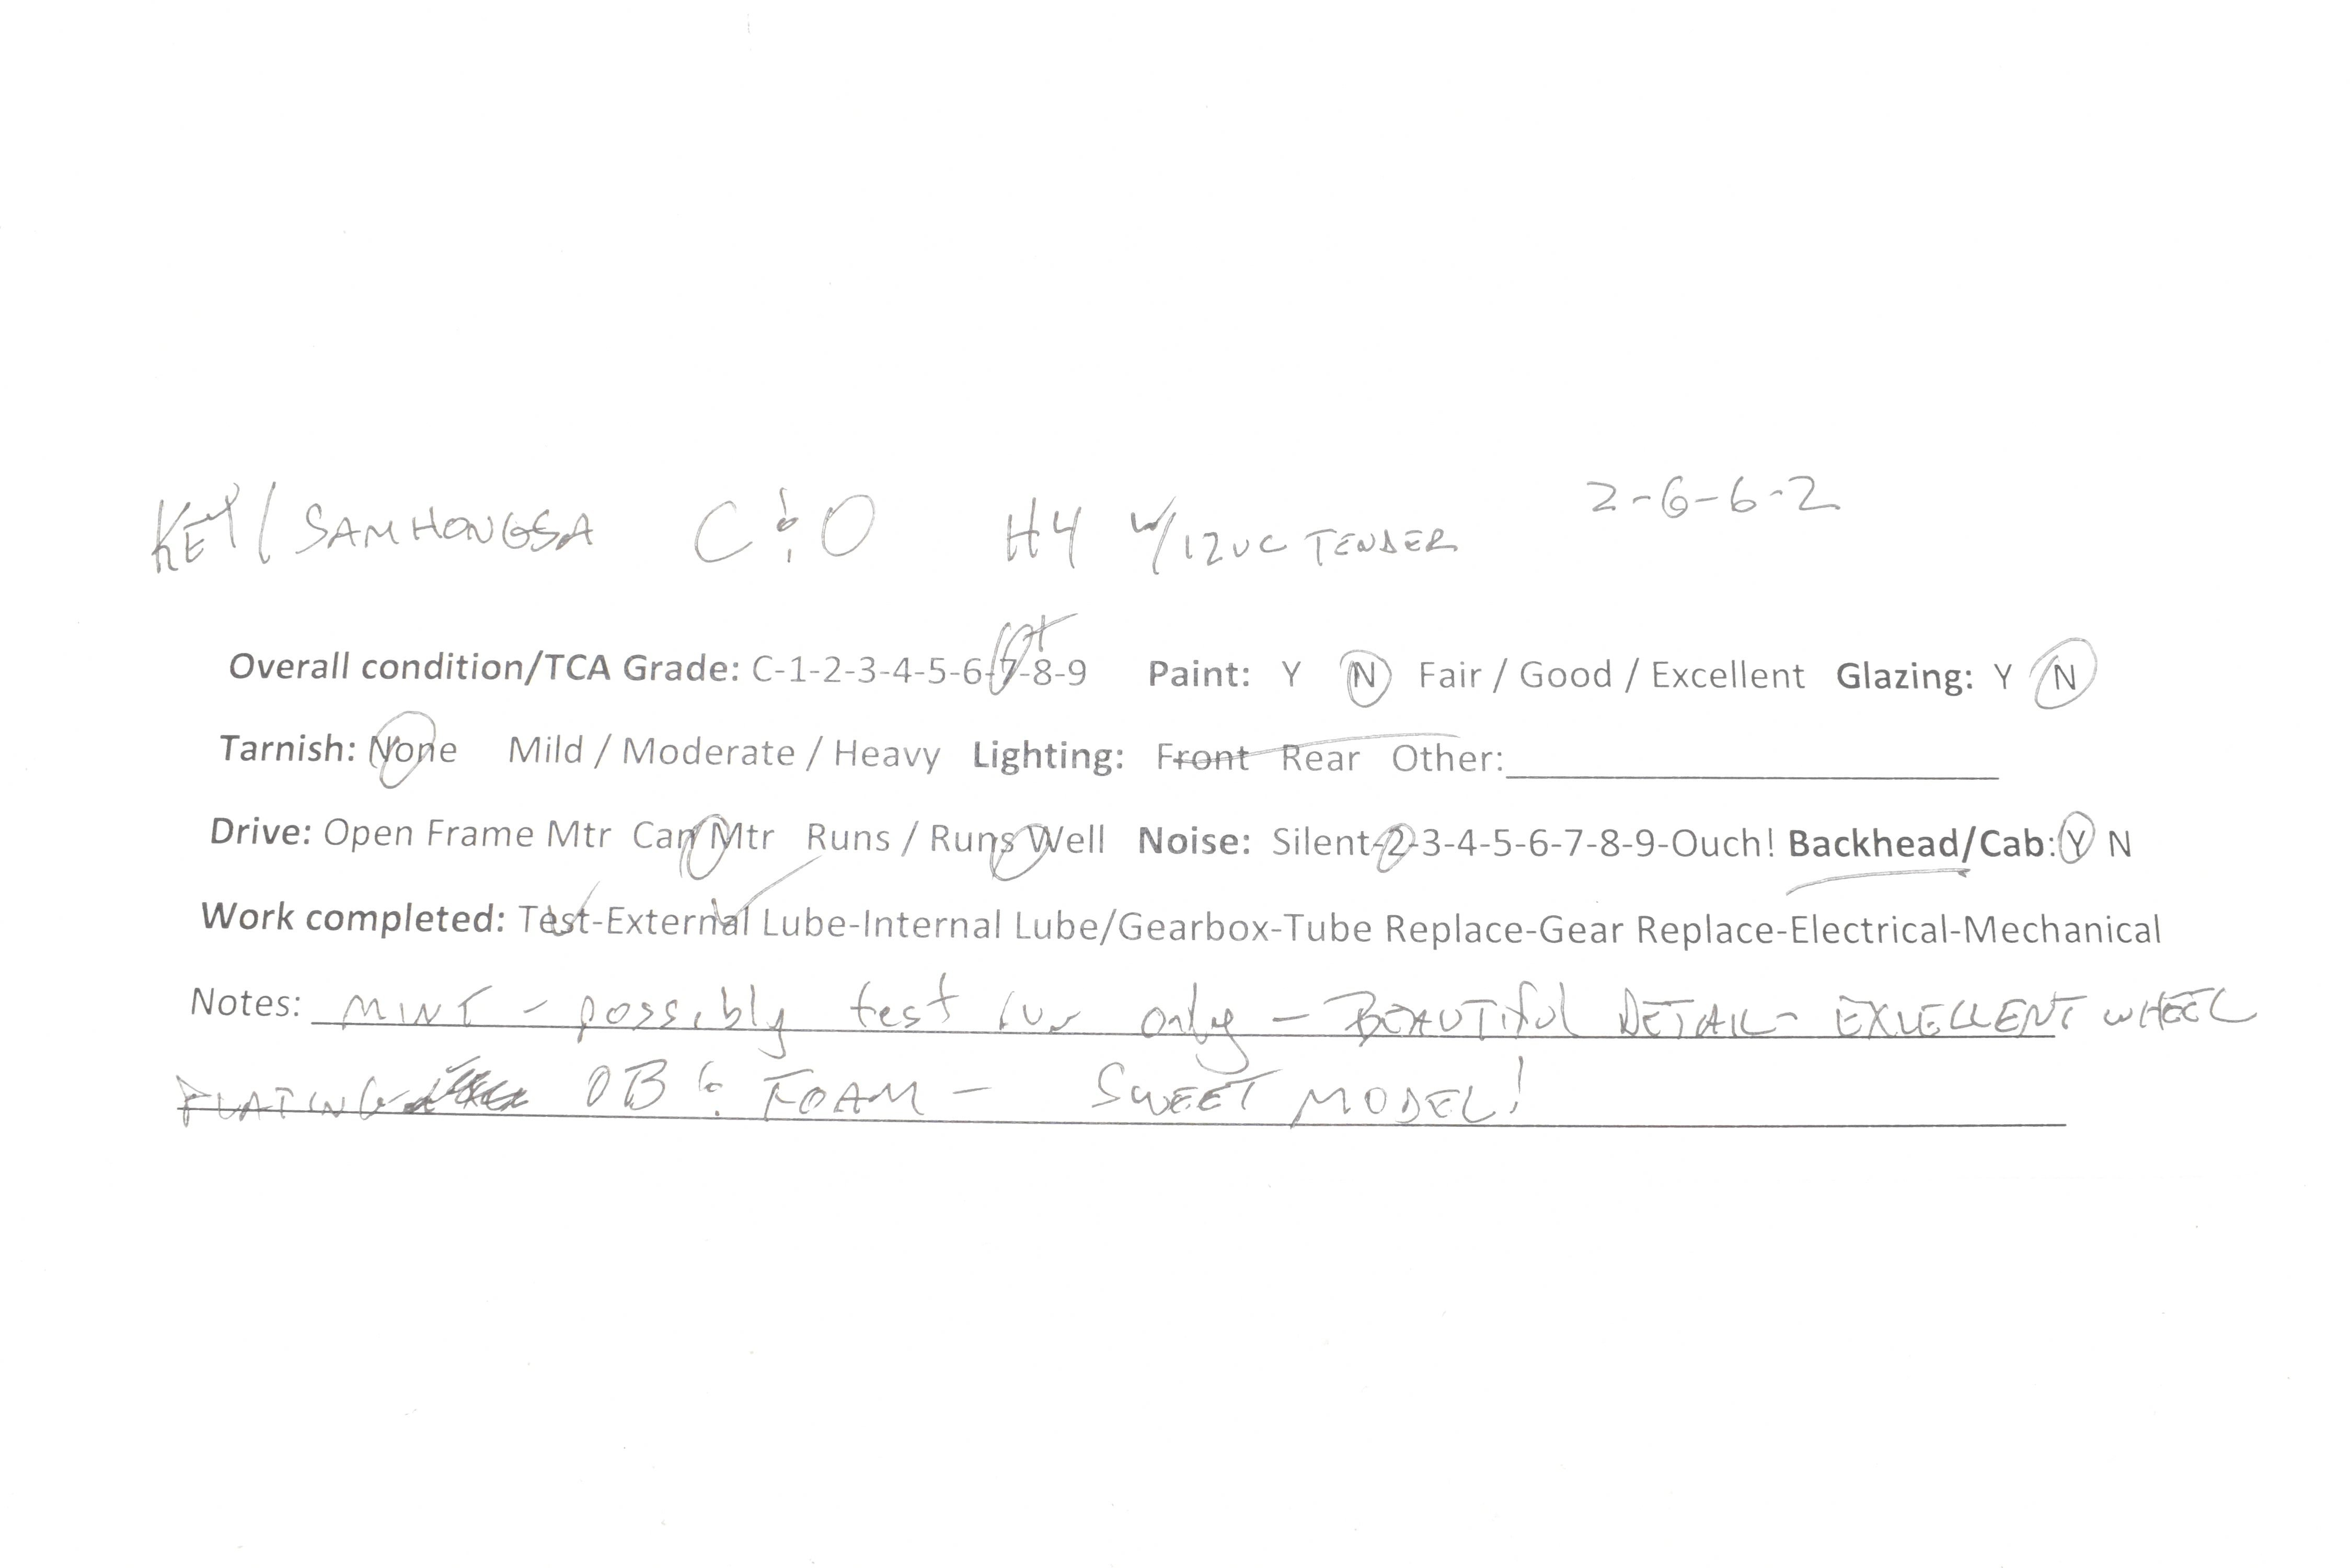 KEY/SAMHONGSA C&O H4 w/12VC TENDER 2-6-6-2
Overall condition/TCA Grade: C-1-2-3-4-5-6-7-8-9 + Paint: Y N Fair / Good / Excellent Glazing: Y N
Tarnish: None Mild / Moderate / Heavy Lighting: Front Rear Other:
Drive: Open Frame Mtr Can Mtr Runs / Runs Well Noise: Silent-2-3-4-5-6-7-8-9-Ouch! Backhead/Cab: Y N
Work completed: Test-External Lube-Internal Lube/Gearbox-Tube Replace-Gear Replace-Electrical-Mechanical
Notes: MINT - possibly test run only - BEAUTIFUL DETAIL - EXCELLENT WHEEL
PLATING OB & FOAM - SWEET MODEL!